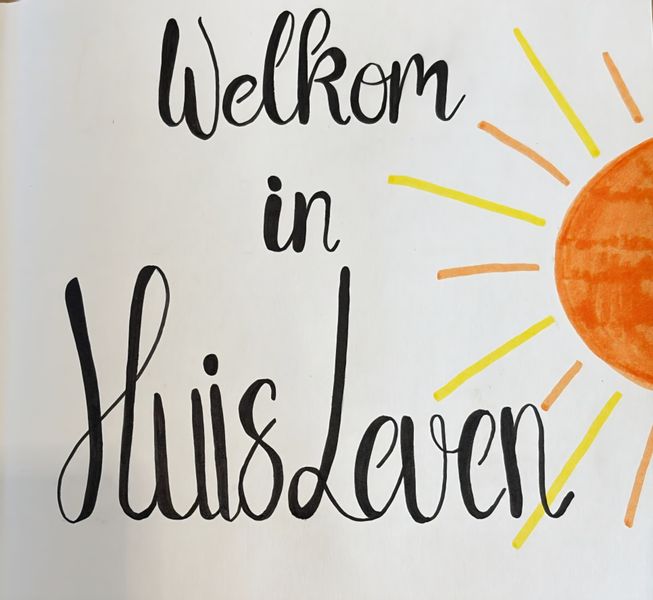 Welkom
in
Huis Leven